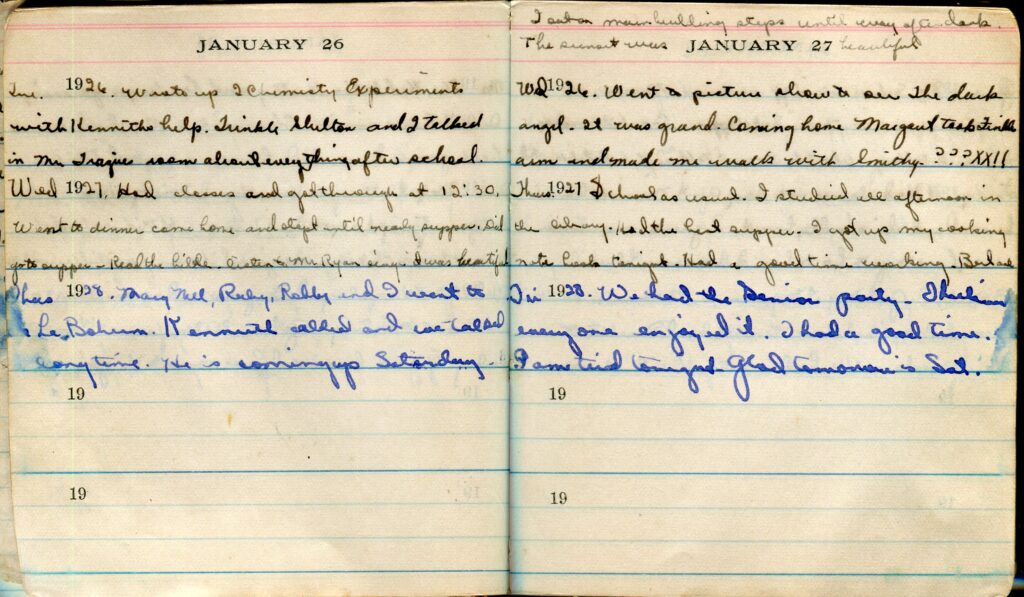 JANUARY 26
Tue. 1926. Wrote up 2 Chemisty Experiments
with Kenniths help. Trinkle Shelton and I talked
in Mr room about everything after school.
Wed 1927, Had classes and got through at 12:30.
Went to dinner came home and slept until nearly supper. Did
go to supper - Read the bible. Listen to Mr Ryan sing. it was beautiful
hurs 1928. Marg Nell, Ruby, Robby and I went to
La Bohem. Kenneth called and we talked
long time. He is coming up Saturday.
19
19
I sat on main building steps until way after dark.
The sunset was beautiful
JANUARY 27
Wed 1926. Went to picture show to see The dark
angel. It was grand. Coming home Margaret took Trinkle
arm and made me walk with Smithy. ???XX!!
Thurs. 1927 School as usual. I studied all afternoon in
the library. Had the best supper. I got up my cooking
note book tonight. Had a good time working.
Fri 1928. We had the Senior party. I believe
everyone enjoyed it. I had a good time.
I am tired tonight. Glad tomorrow is Sat.
19
19